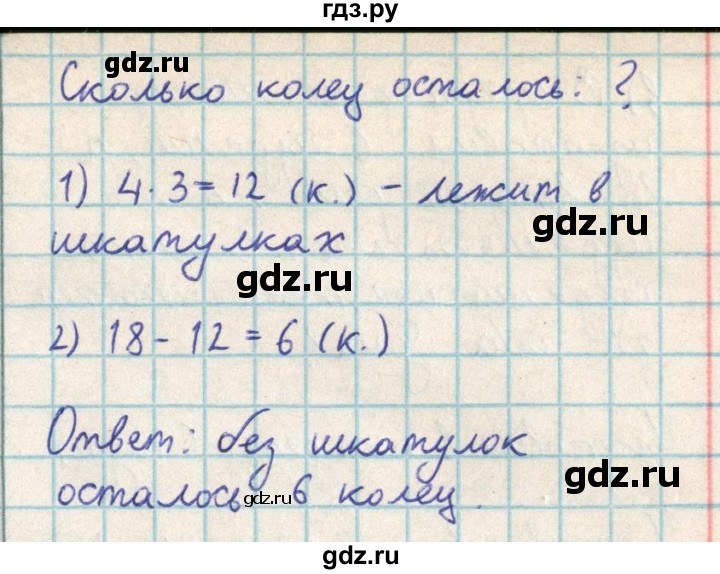 гдз.ру
gdz.ru
Сколько колец осталось: ?
1) 4·3=12 (к.) – лежит в
gdz.ru
шкатулках
gdz.ru
2) 18-12=6 (к.)
Ответ: без шкатулок
gdz.ru
осталось 6 колец
gdz.ru
gdz.ru